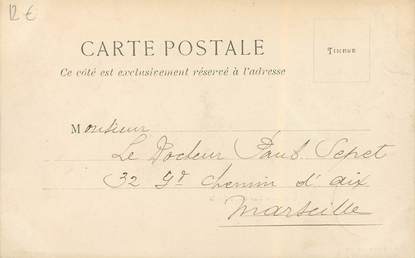 12 €
CARTE POSTALE
TIMBRE
Ce côté est exclusivement réservé à l'adresse
Monsieur
Le Docteur Paul
32 Gd chemin d'aix
Marseille